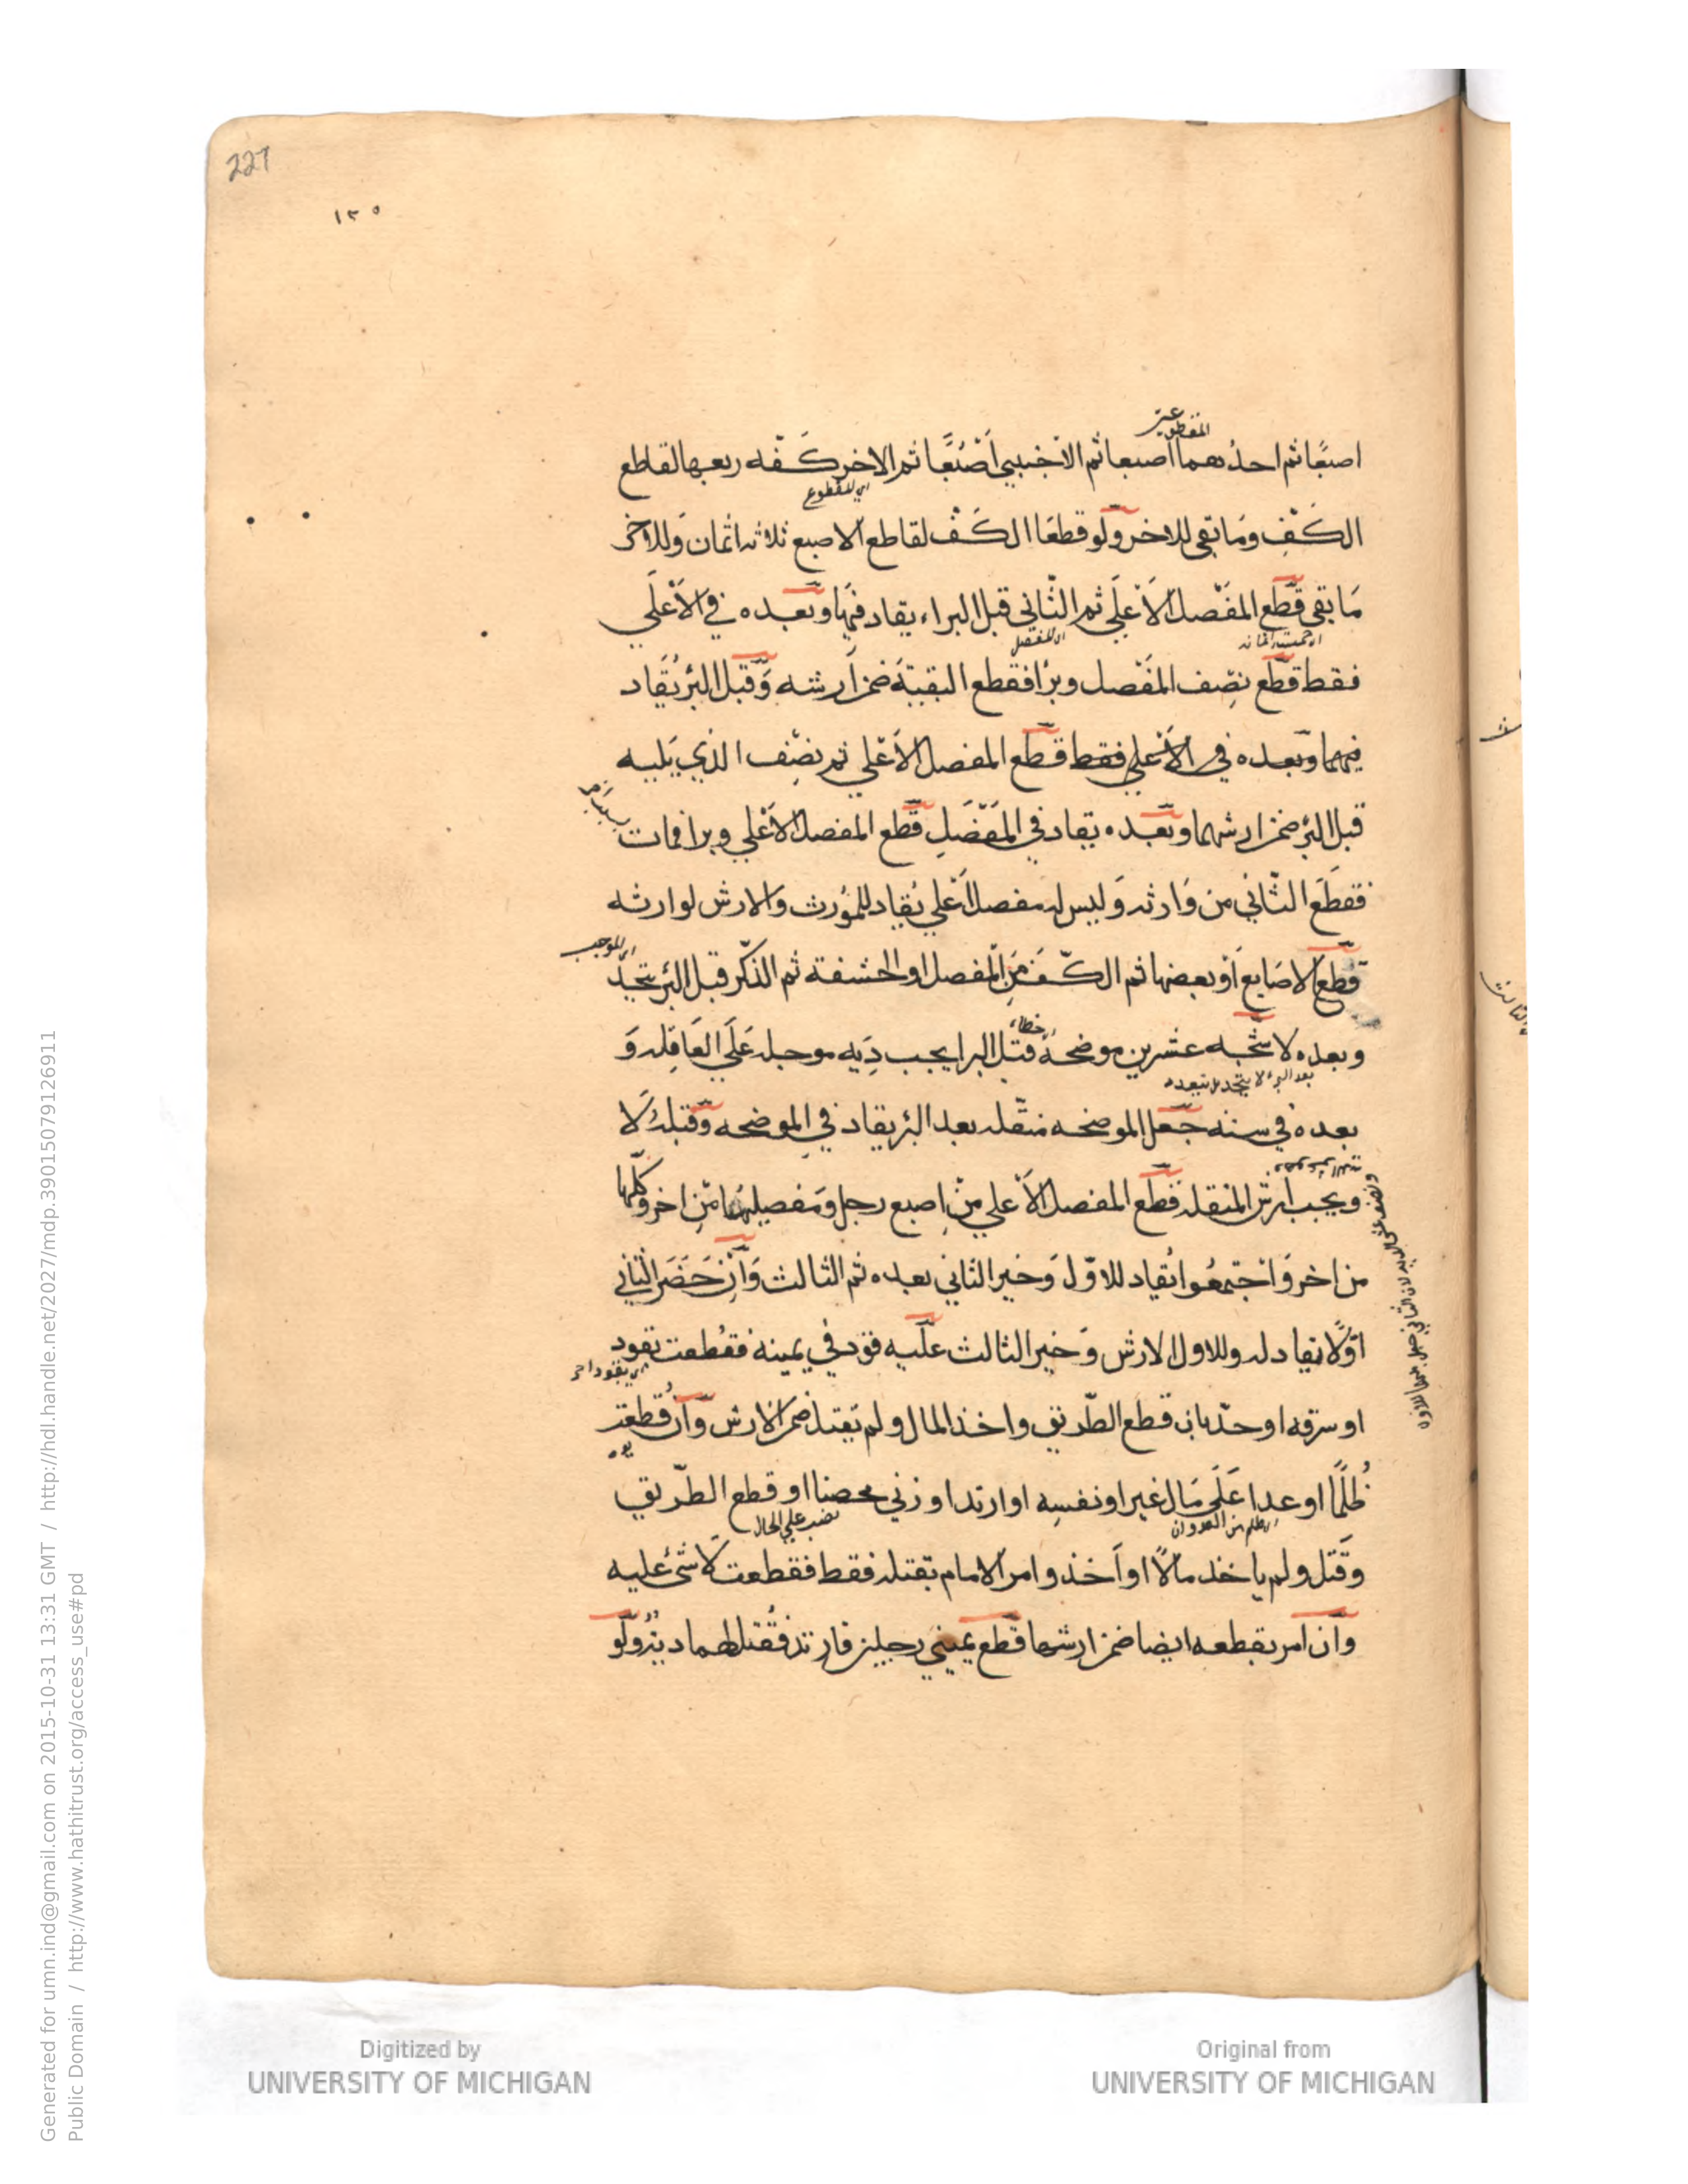 227
١٢٥
المقطوعين
اصبعًا ثم احدُهما اصبعا ثم الاخنبي اَصْبُعًا ثم الاخر كَفّه ربعها لقاطع
اي للمقطوع
الكَفِ ومَا بقى للاخر ولو قطعَا الكَفْ لقاطع الاصبع ثلاثه اثمان وَللاخر
مَا بقى قطع المفَصل الاَعْلَى ثم الثّاني قبل البراء يقاد فيهَا وبَعْده في الاَعْلَي
فقط قطع نِصف المفَصل وبرُا فقطع البقيةَ ضمن اَرشه وَقبل البُر يُقَاد
فيهما وبَعده في الاَعْلي فقط قطع المفصل الاَعْلي ثم نصِف الذي يَليه
قبل البُر ضمن ارشهما وبَعْده يقاد في المَفْصَلِ قطع المفصل الاَعْلي وبرا فمات
فقطَعَ الثّاني من وَارثه وَليس له مفصل اَعْلي يُقِاد للمُورث وَالارش لوارثه
اي الموجب
قُطع الاصَابع اَوْ بعضها ثم الكّفَ مَن المفصل او الحشفة ثم الذكّر قبل البُر يتحِدّ
وبعده لا شجّه عشرين موضحةً قبل البرا يجب دِيه موجله عَلَي العَاقِله وَ
خطاء
بعده في سنه جَعل الموضحه منقّله بعد البُر يقاد في الموضحه وقبله لَا
ويجب اَرش المنقله قطع المفصل الاَعْلي مِنْ اِصبع رجل وَمفصيلهُما مّنِ اخر وكلّها
من اخر وَاجتمعُوا يُقاد للاوّل وَخير الثاني بعده ثم الثالث وَاِنْ حَضَر الثاني
اوّلًا يقاد له وللاول الارش وَخير الثالث علّيه قود في يمينه فقُطعت بقود
اي بقود اخر
او سرقه او حدّ بان قطع الطّريق واخذ المال ولم يَقتل ضمن الارش وَاَن قُطعت
يده
ظُلمًا او عدا عَلَى مَال غير او نفسِه او ارتد او زني محصنا او قطع الطّريق
نصب علي الحال
وَقتل ولم ياخذ مالًا او اَخذ وامر الامام بقتله فقط فقطعت لَا شئ عليه
وان امر بقطعه ايضا ضمن ارشها قطع يميني رجلين فارتد فقُتل لهما ديته ولو
Generated for umn.ind@gmail.com on 2015-10-31 13:31 GMT / http://hdl.handle.net/2027/mdp.39015079126911
Public Domain / http://www.hathitrust.org/access_use#pd
Digitized by
UNIVERSITY OF MICHIGAN
Original from
UNIVERSITY OF MICHIGAN